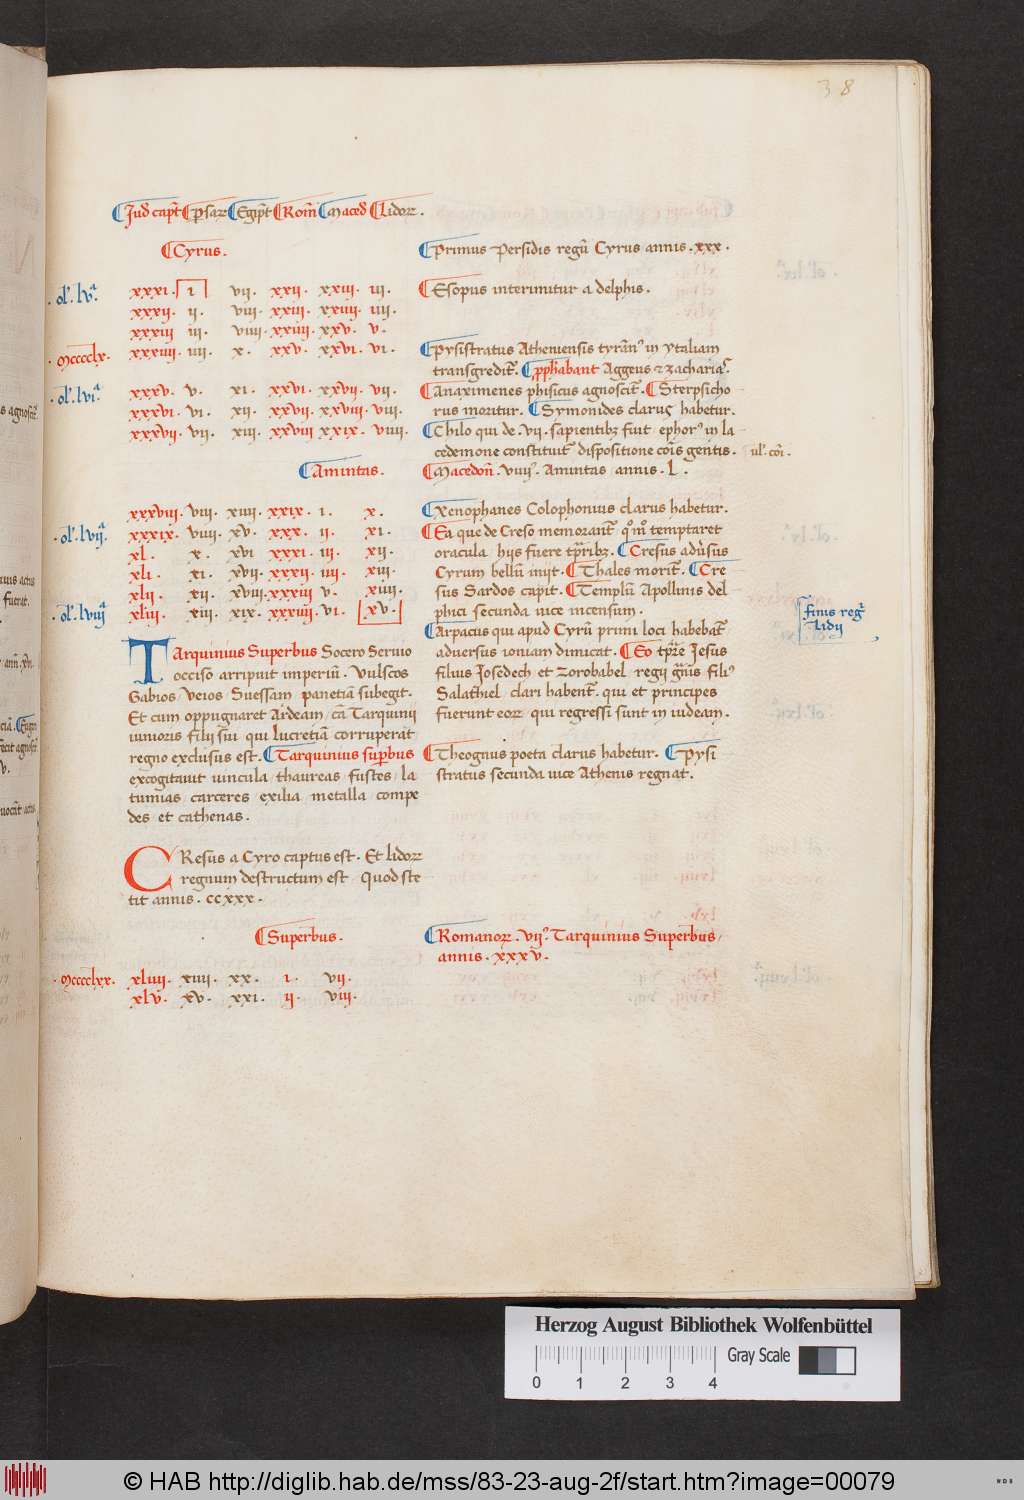 38
Jud capt Psar Egipt Rom Maced Lidor .
Cyrus .
Primus Persidis regū Cyrus annis . xxx .
. ol . lv . xxxi . i vii . xxii . xxiii . iii . Esopus interimitur a delphis .
xxxii . ii . viii . xxiii . xxiiii . iiii .
xxxiii iii . viiii . xxiiii . xxv . v .
. mccccclx . xxxiiii . iiii . x . xxv . xxvi . vi . Pysistratus Atheniensis tyrann in ytaliam
transgredit . Pphabant Aggeus et zacharia
. ol . lvi xxxv . v . xi . xxvi . xxvii . vii . Anaximenes phisicus agnoscit . Stersicho
xxxvi . vi . xii . xxvii . xxviii . viii . rus moritur . Symonides clarus habetur .
xxxvii . vii . xiii . xxviii xxix . viiii . Chilo qui de . vii . sapientibz fuit ephor in la
cedemone constituit dispositione cois gentis . ul . coi .
Amintas . Macedon . viiii . Amintas annis . L .
xxxviii . viii . xiiii . xxix . i . x . Xenophanes Colophonius clarus habetur .
. ol . lvii . xxxix . viiii . xv . xxx . ii . xi . Ea que de Creso memorant qmo temptaret
xl . x . xvi xxxi . iii . xii . oracula hijs fuere tpribz . Cresus adusus
xli . xi . xvii . xxxii . iiii . xiii . Cyrum bellu inijt . Thales morit . Cre
xlii . xii . xviii . xxxiii v . xiiii . sus Sardos capit . Templu Apollinis del
. ol . lviii xliii . xiii . xix . xxxiiii . vi . xv . phici secunda uice incensum .
finis reg
Lidij
Arpacus qui apud Cyrū primi loci habebat
aduersus ioniam dimicat . Eo tpre Jesus
filius Josedech et zorobabel regij gnis fili
Salathiel clari habent . qui et principes
fuerunt eor qui regressi sunt in iudeam .
Tarquinius Superbus Socero Seruio
occiso arripuit imperiū . Vulscos
Gabios Veios Suessam panetia subegit .
Et cum oppugnaret Ardeam ca Tarquinij
iunioris filij sui qui lucretia corruperat
regno exclusus est . Tarquinius supbus
excogitauit uincula thaureas fustes la
tumias carceres exilia metalla compe
des et cathenas .
Theognus poeta clarus habetur . Pysi
stratus secunda uice Athenis regnat .
Cresus a Cyro captus est . Et lidor
regnum destructum est Quod ste
tit annis . ccxxx .
Superbus . Romanor . vii . Tarquinius Superbus
annis . xxxv .
. mccccclxx . xliiii . xiiii . xx . i . vii .
xlv . xv . xxi . ii . viii .
Herzog August Bibliothek Wolfenbüttel
Gray Scale
0 1 2 3 4
© HAB http://diglib.hab.de/mss/83-23-aug-2f/start.htm?image=00079